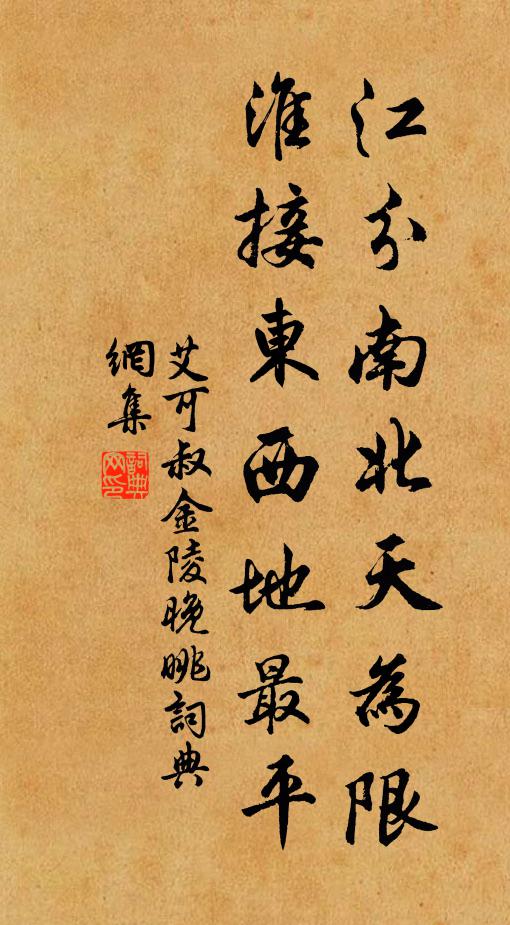 江分南北天為限
淮接東西地最平
艾可叔金陵晚眺詞典
網集
詞典網印